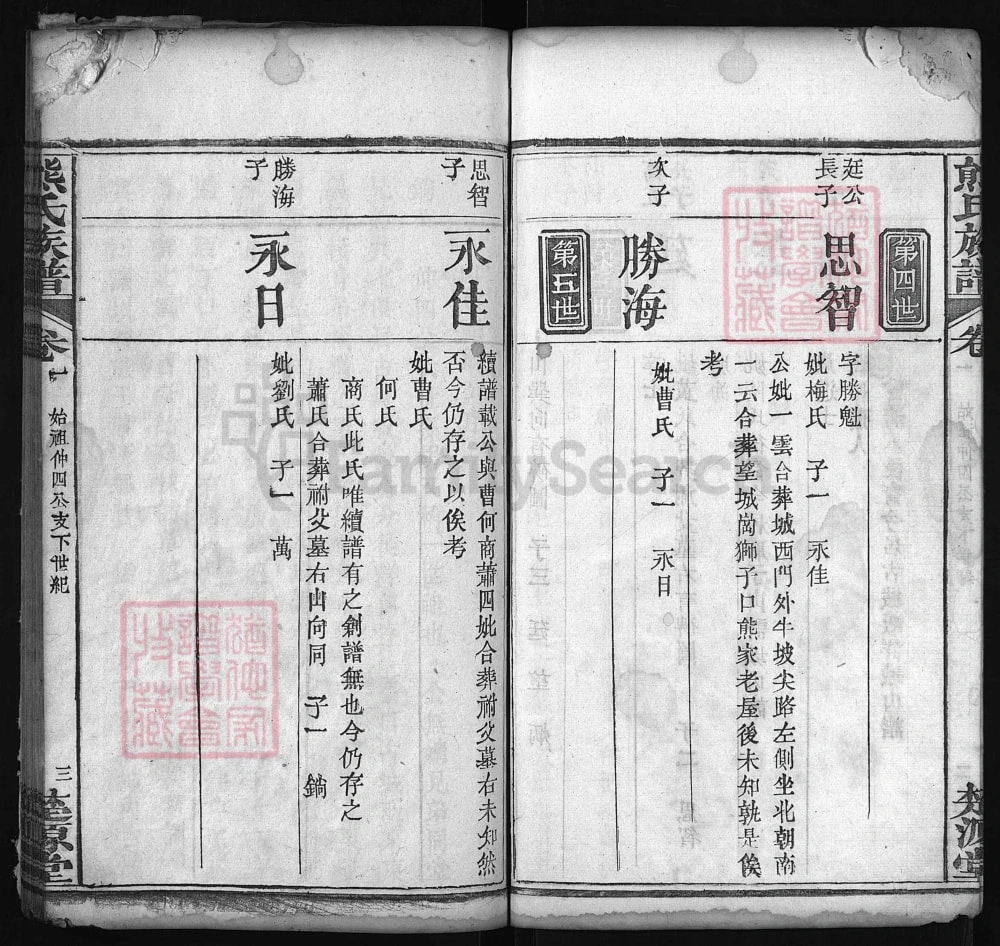 熊氏族譜
卷
楚源堂
第四世
廷公長子
思智
字勝魁
妣梅氏 子一 永佳
公妣一雲合葬城西門外牛坡尖路左側坐北朝南
一云合葬望城崗獅子口熊家老屋後未知孰是俟
考
次子
勝海
妣曹氏 子一 永日
第五世
思智子
永佳
續譜載公與曹何商蕭四妣合葬祔父墓右未知然
否今仍存之以俟考
妣曹氏
何氏
商氏此氏唯續譜有之創譜無也今仍存之
蕭氏合葬祔父墓右山向同 子一 錦
勝海子
永日
妣劉氏 子一 萬
熊氏族譜
卷一
始祖仲四公支下世紀
三
楚源堂
FamilySearch